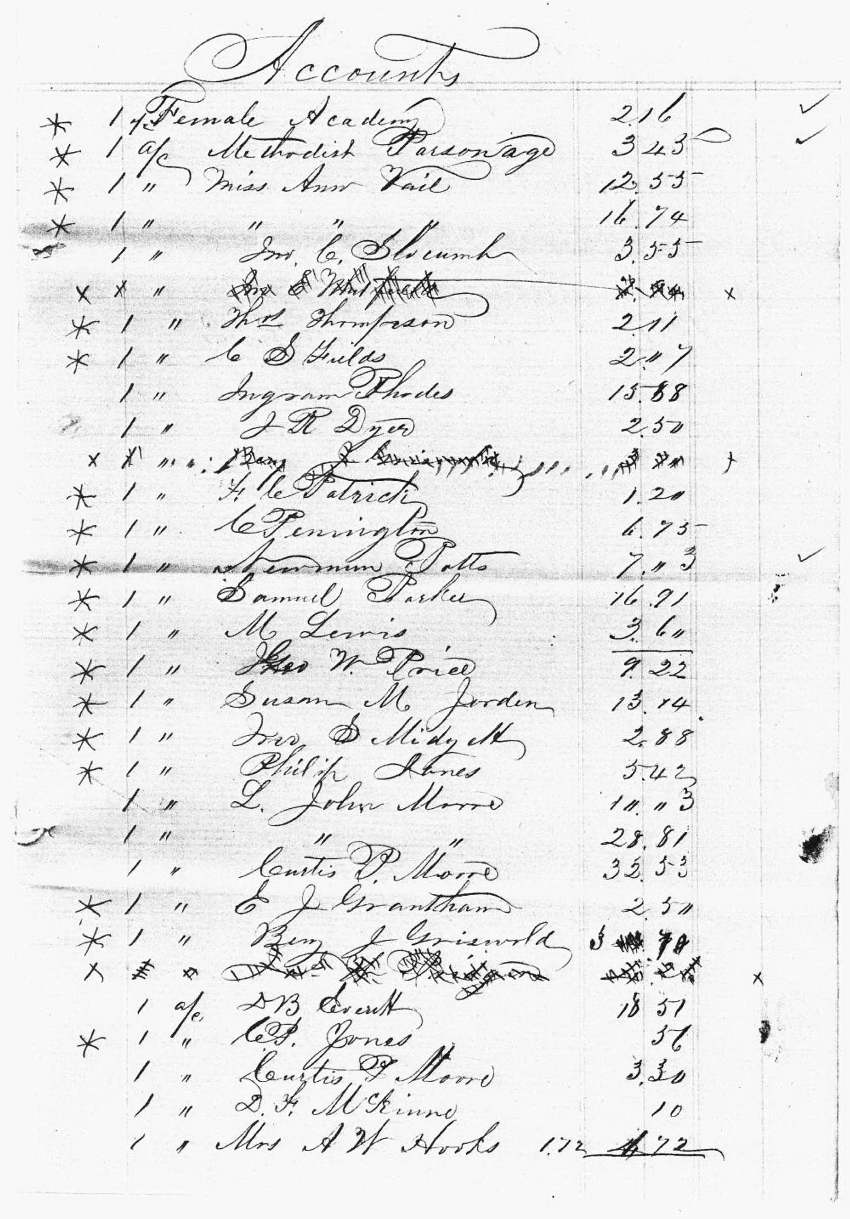 Accounts
* 1 a/c Female Academy 2.16 ✓
* 1 a/c Methodist Parsonage 3 43 ✓
* 1 " Miss Ann Vail 12.55
* 1 " " " " 16.74
1 " Jno. C. Slocumb 3.55
x x " x
* 1 " Thos Thompson 2.11
* 1 " C S Fields 2."7
1 " Ingram Rhodes 15.88
1 " J R Dyer 2.50
x x " x
* 1 " F. C Patrick 1.20
* 1 " C Pennington 6.75
* 1 " Newman Potts 7."3 ✓
* 1 " Samuel Parker 16.91
* 1 " M Lewis 3.6"
* 1 " W. Price 9.22
* 1 " Susan M Jorden 13.14
* 1 " Jno S Midyett 2.88
* 1 " Philip Jones 5.42
1 " L. John Moore 1".”3
1 " " " 28.81
1 " Curtis P. Moore 32.53
* 1 " E J Grantham 2.5"
* 1 " Benj J Griswold 3 70
x " x
1 a/c, D B Everett 18 51
* 1 " C P. Jones 56
1 " Curtis P Moore 3.30
1 " D. F. McKinne 10
1 " Mrs A W Hooks 1.72 72